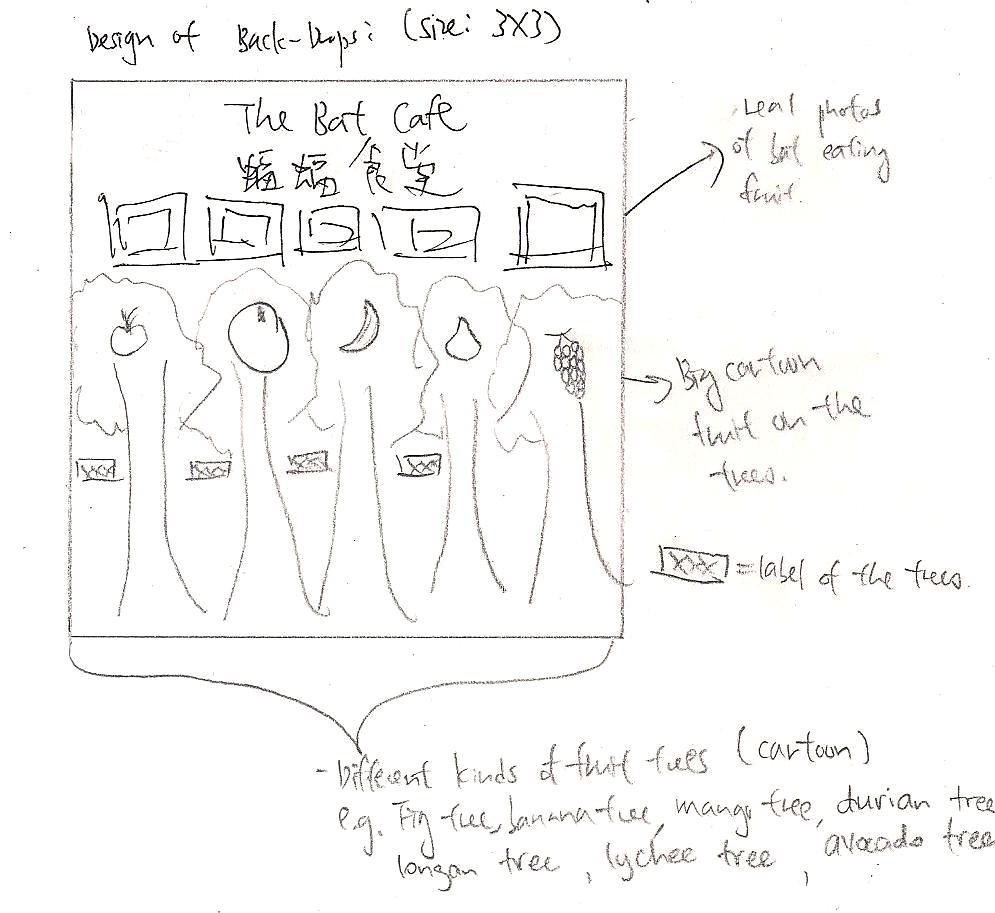 Design of Back-Drops: (size: 3X3)
The Bat Cafe
蝙蝠食堂
real photos
of bat eating
fruit.
Big cartoon
fruit on the
trees.
XXX
XXX
XXX
XXX
XXX = label of the trees.
- Different kinds of fruit trees (cartoon)
e.g. Fig tree, banana tree, mango tree, durian tree
longan tree, lychee tree, avocado tree